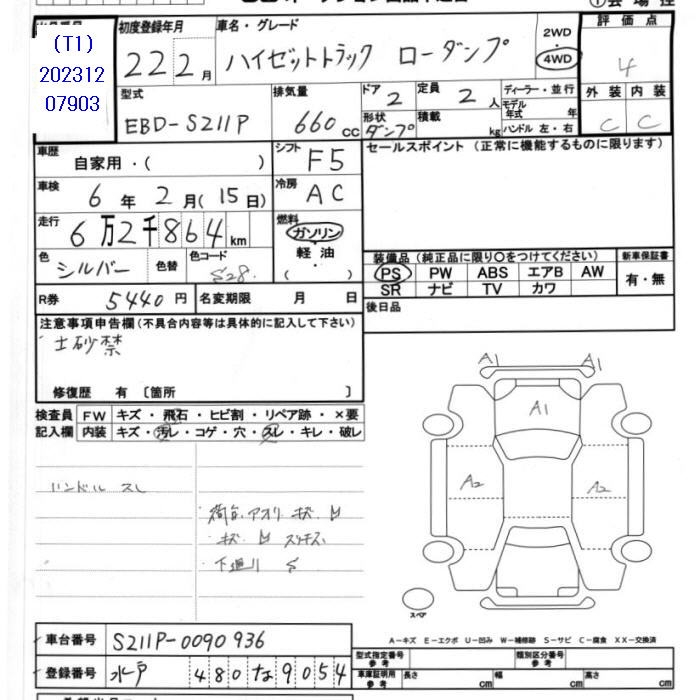 初度登録年月 車名・グレード 評価点
(T1)
202312
07903
22 2月 ハイゼットトラック ローダンプ 2WD 4WD 4
型式 排気量 ドア 定員 ディーラー・並行 外装 内装
EBD-S211P 660cc 2 2人 モデル年式 年 C C
形状 ダンプ 積載 kg ハンドル 左・右
車歴 自家用・( ) シフト F5 セールスポイント (正常に機能するものに限ります)
車検 6年2月(15日) 冷房 AC
走行 6万2千864km 燃料 ガソリン
軽油
( )
色 シルバー 色替 色コード S28.
装備品 (純正品に限り〇をつけてください) 新車保証書
PS PW ABS エアB AW 有・無
SR ナビ TV カワ
R券 5440円 名変期限 月 日 後日品
注意事項申告欄 (不具合内容等は具体的に記入して下さい)
土砂禁
修復歴 有 〔箇所 〕
検査員 FW キズ・飛石・ヒビ割・リペア跡・×要
記入欄 内装 キズ・汚レ・コゲ・穴・スレ・キレ・破レ
ハンドル スレ
荷台 アオリ キズ
キズ
下廻リ S
A1 A1
A1
A2 A2
スペア
A－キズ E－エクボ U－凹み W－補修跡 S－サビ C－腐食 XX－交換済
車台番号 S211P-0090936
型式指定番号 参考 類別区分番号 参考
登録番号 水戸 480 な 9054
車庫証明用 参考 長さ cm 幅 cm 高さ cm